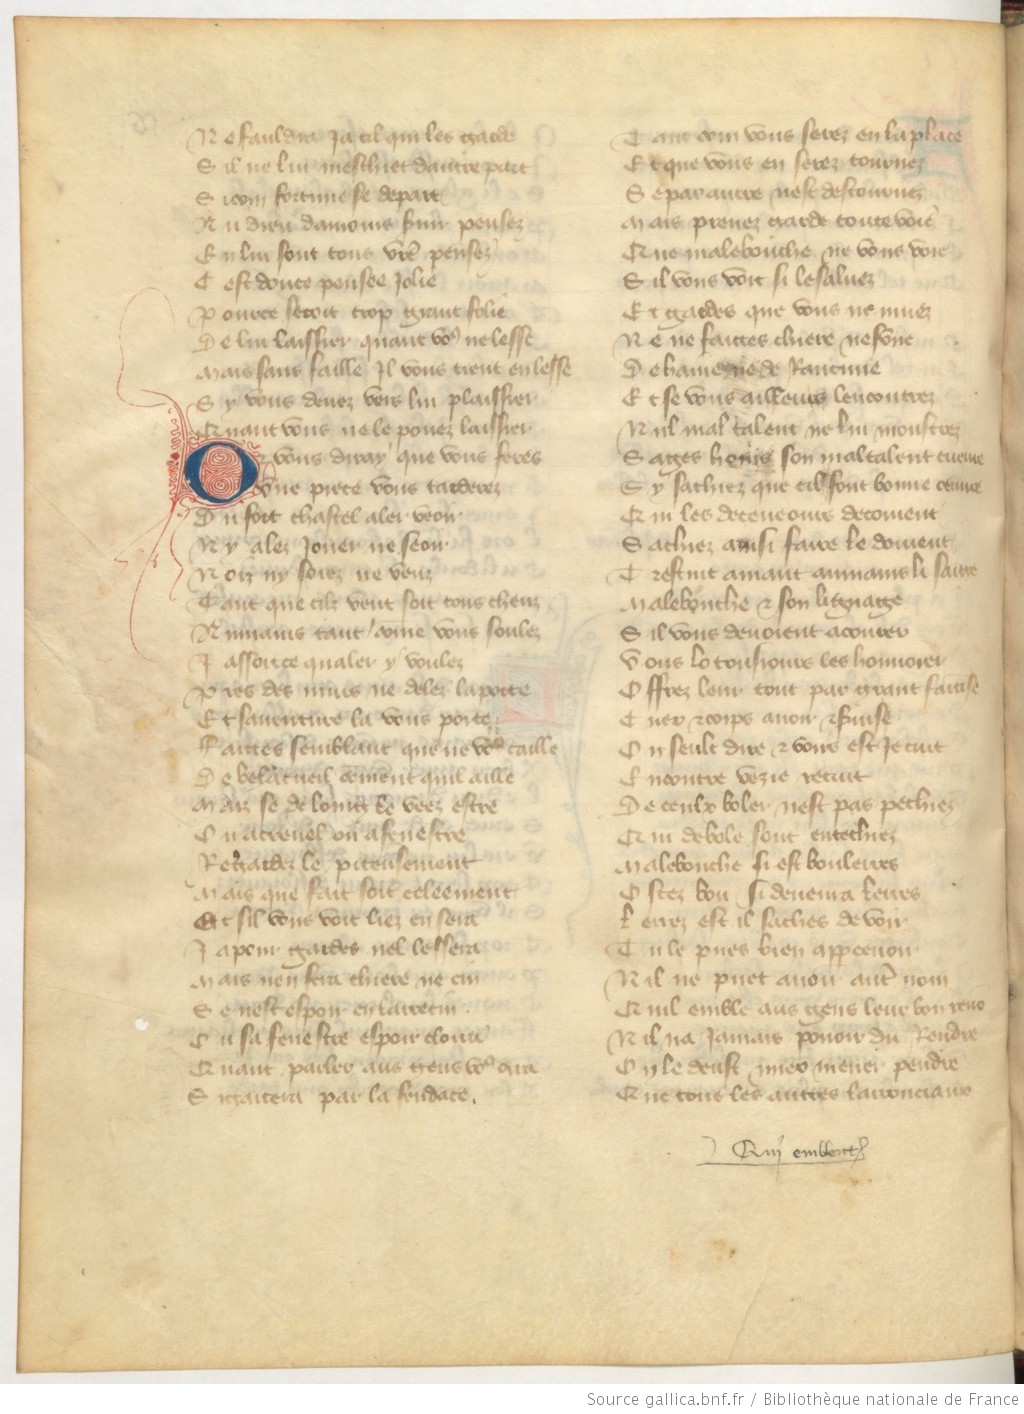 Ne fauldra ja cil qui les garde
Sil ne lui meschiet dautre part
Sicom fortune se depart
Au dieu damours huir pensez
En lui sont tous vrē pensez
Cest doulce pensee jolie
Pource seroit trop grant folie
De lui laissier quant voꝰ ne lesse
Mais sans faille Il vous tient en lesse
Sy vous devez vers lui plaissier
Quant vous ne le povez laissier
Or vous diray que vous feres
Une piece vous tarderez
Du fort chastel aler veoir
Ny alez jouer ne seoir
Noiz ny soiez ne veuz
Tant que cilz vent soit tous cheuz
Aumains tant come vous soulez
Ja assoice qualer y voulez
Pres des murs ne delez la porte
Et saventure la vous porte
Faites semblant que ne voꝰ caille
De belacueil coment quil aille
Maiz se de loingz le veez estre
Ou a crenel ou a fenestre
Regardez le piteusement
Mais que fait soit celeement
Et sil vous voit liez en sera
Ja pour gardes nel lessera
Mais nen fera chiere ne cin
Se nest espoir en larrecin
Ou sa fenestre espoir clorra
Quant parler aus gens voꝰ orra
Sigaitera par la fendace.
Tant com vous serez en la place
Et que vous en serez tournez
Se par autre nest destournez
Mais prenez garde toute voie
Que malebouche ne vous voie
Sil vous voit si le saluez
Et gardes que vous ne muez
Ne ne faittes chiere nesune
De haine ne de Rancune
Et se vous ailleurs lencontrez
Nul mal talent ne lui monstrez
Sages homs son maltalent cuevre
Sy sachiez que cilz font bonne oeuvre
Qui les deceveours decoivent
Sachiez ainsi faire le doivent
Trestuit amant aumains li saive
Malebouche & son lignage
Sil vous devoient acourer
Vous lo tousjours les honnorer
Offrez leur tout par grant faintise
Cuer & corps avoir & servise
On seult dire & voirs est Je cuit
Encontre vezie recuit
De ceulx boler nest pas pechiez
Qui de bole sont entechiez
Malebouche si est bouleires
Ostez bou si devenra lerres
Lerrez est il saches de voir
Tu le pues bien appcevoir
Nil ne puet avoir autr̄ nom
Quil emble aus gens leur bon reno
Nil na Jamais povoir du Rendre
On le deust mier mener pendre
Que tous les autres larronciaux
Qui emblent